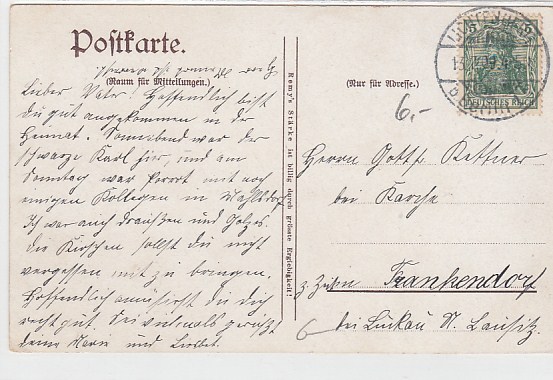 Postkarte.
(Raum für Mitteilungen.)
Lieber Vater! Hoffentlich bist
du gut angekommen in der
Heimat. Sonnabend war der
schwarze Karl hier, und am
Sonntag war mit noch
einigen Kollegen in Mahlsdorf
Ich war auch draußen und
die Kirschen sollst du nicht
vergessen mit zu bringen.
Hoffentlich amüsirst du dich
recht gut. Sei vielmals gegrüßt
deine Marie und Lisbet.
Remy's Stärke ist billig durch grösste Ergiebigkeit!
(Nur für Adresse.)
6,-
DEUTSCHES REICH
5
5
Herrn Gottf. Kettner
bei
z. Zt. Frankendorf
bei Luckau N. Lausitz.
6